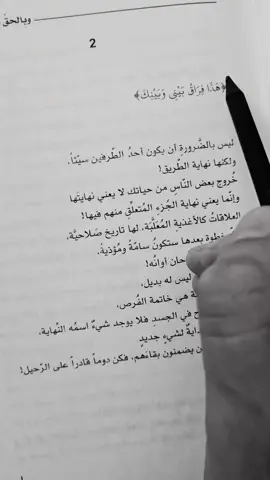 وبالحقّ
2
﴿هَذَا فِرَاقُ بَيْنِي وَبَيْنِكَ﴾
ليس بالضَّرورةِ أن يكون أحدُ الطّرفين سيّئاً.
ولكنها نهاية الطّريق!
خُروج بعض النّاسِ من حياتك لا يعني نهايتَها
وإنّما يعني نهاية الجُزء المُتعلِّقِ منهم فيها!
العلاقاتُ كالأغذيةِ المُعلَّبَة، لها تاريخ صَلاحيَّة،
خطوة بعدها ستكونُ سامّةً ومُؤذيةً.
حان أوانُه!
ليس له بديل،
هي خاتمة الفُرص،
في الجسدِ فلا يوجد شيءٌ اسمُه النّهاية.
لشيءٍ جديدٍ
يضمنون بقاءَهم، فكن دوماً قادراً على الرّحيل!